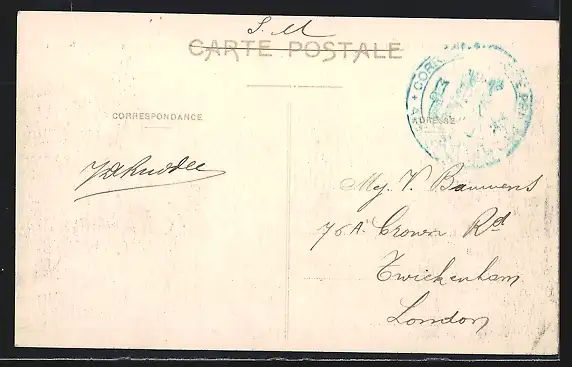 S. M
CARTE POSTALE
CORRESPONDANCE
CORR
ADRESSE
Mej. V. Bauwens
76A. Crown Rd
Twickenham
London